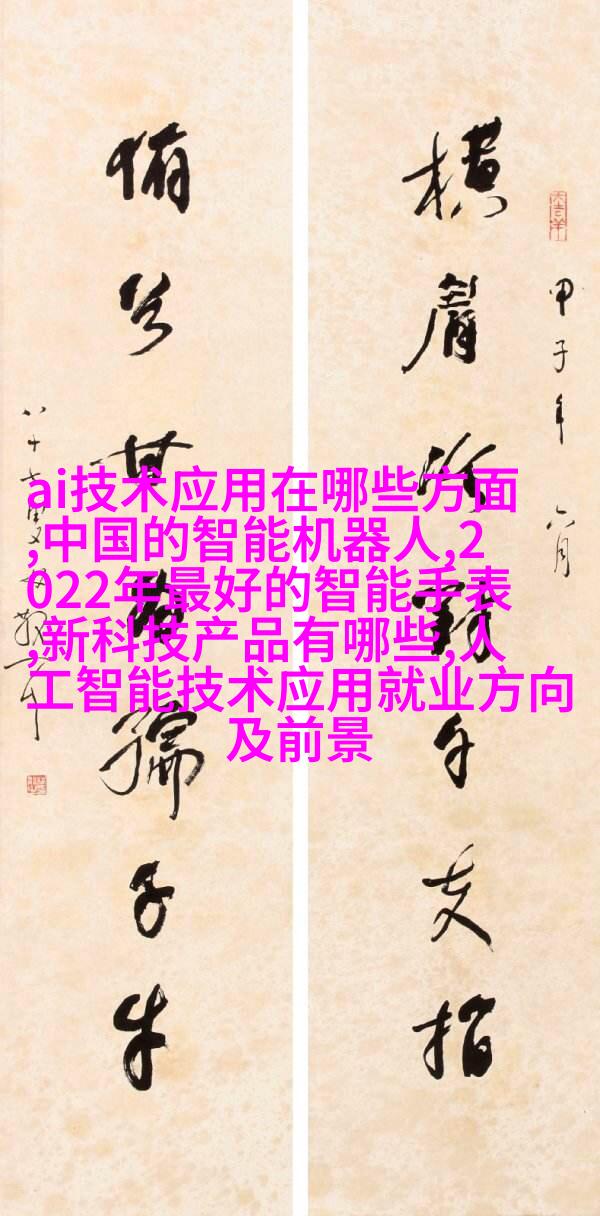 甲子年 六月
横眉冷對千夫指
俯首甘為孺子牛
ai技术应用在哪些方面
,中国的智能机器人,2
022年最好的智能手表
,新科技产品有哪些,人
工智能技术应用就业方向
及前景